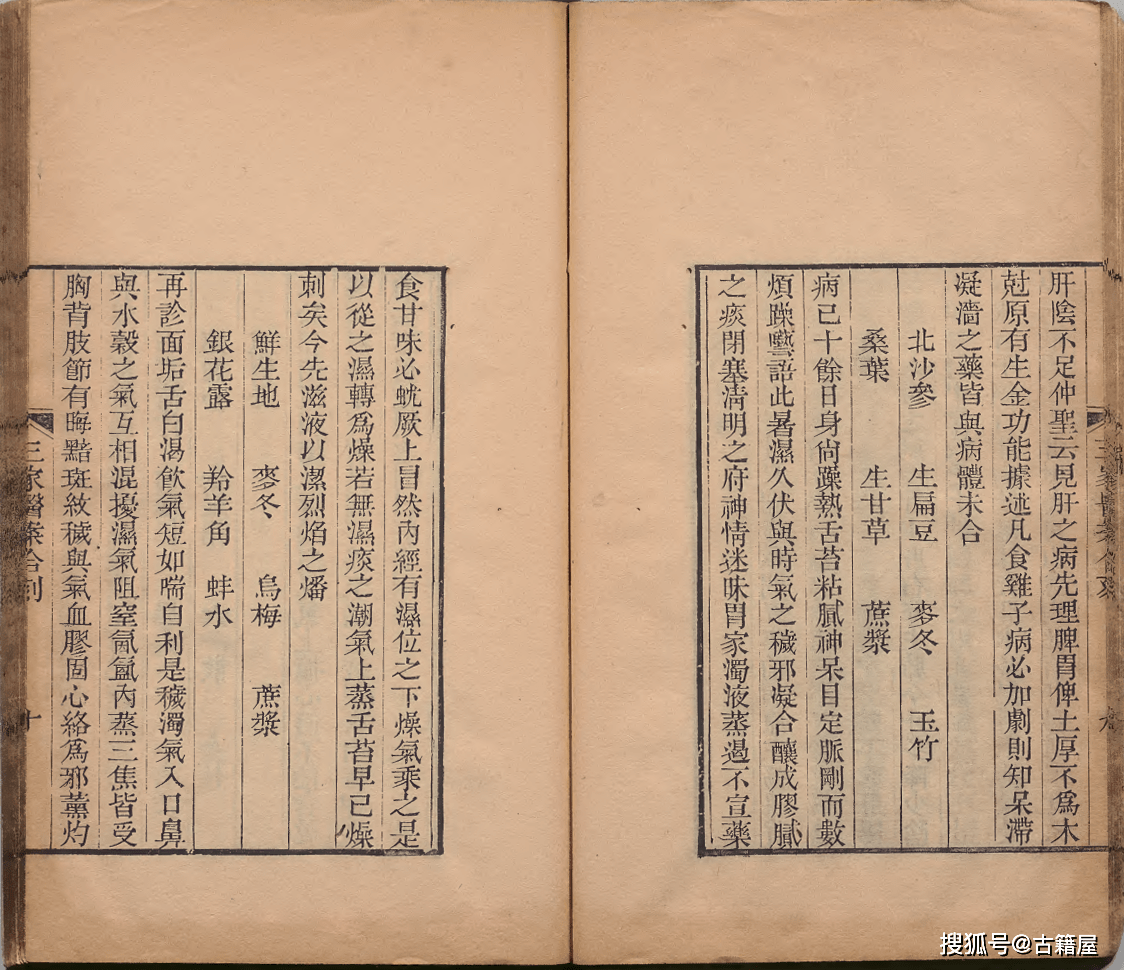 肝陰不足仲聖云見肝之病先理脾胃俾土厚不爲木
尅原有生金功能據述凡食雞子病必加劇則知呆滯
凝濇之藥皆與病體未合
北沙參 生扁豆 麥冬 玉竹
桑葉 生甘草 蔗漿
病已十餘日身尙躁熱舌苔粘膩神呆目定脈剛而數
煩躁囈語此暑濕久伏與時氣之穢邪凝合釀成膠膩
之痰閉塞淸明之府神情迷昧胃家濁液蒸遏不宣藥
九
食甘味必蚘厥上冒然內經有濕位之下燥氣乘之是
以從之濕轉爲燥若無濕痰之潮氣上蒸舌苔早已燥
刺矣今先滋液以潔烈焰之燔
鮮生地 麥冬 烏梅 蔗漿
銀花露 羚羊角 蚌水
再診面垢舌白渴飲氣短如喘自利是穢濁氣入口鼻
與水穀之氣互相混擾濕氣阻窒氤氳內蒸三焦皆受
胸背肢節有晦黯斑紋穢與氣血膠固心絡爲邪薰灼
三家醫案合刻
十
搜狐号@古籍屋